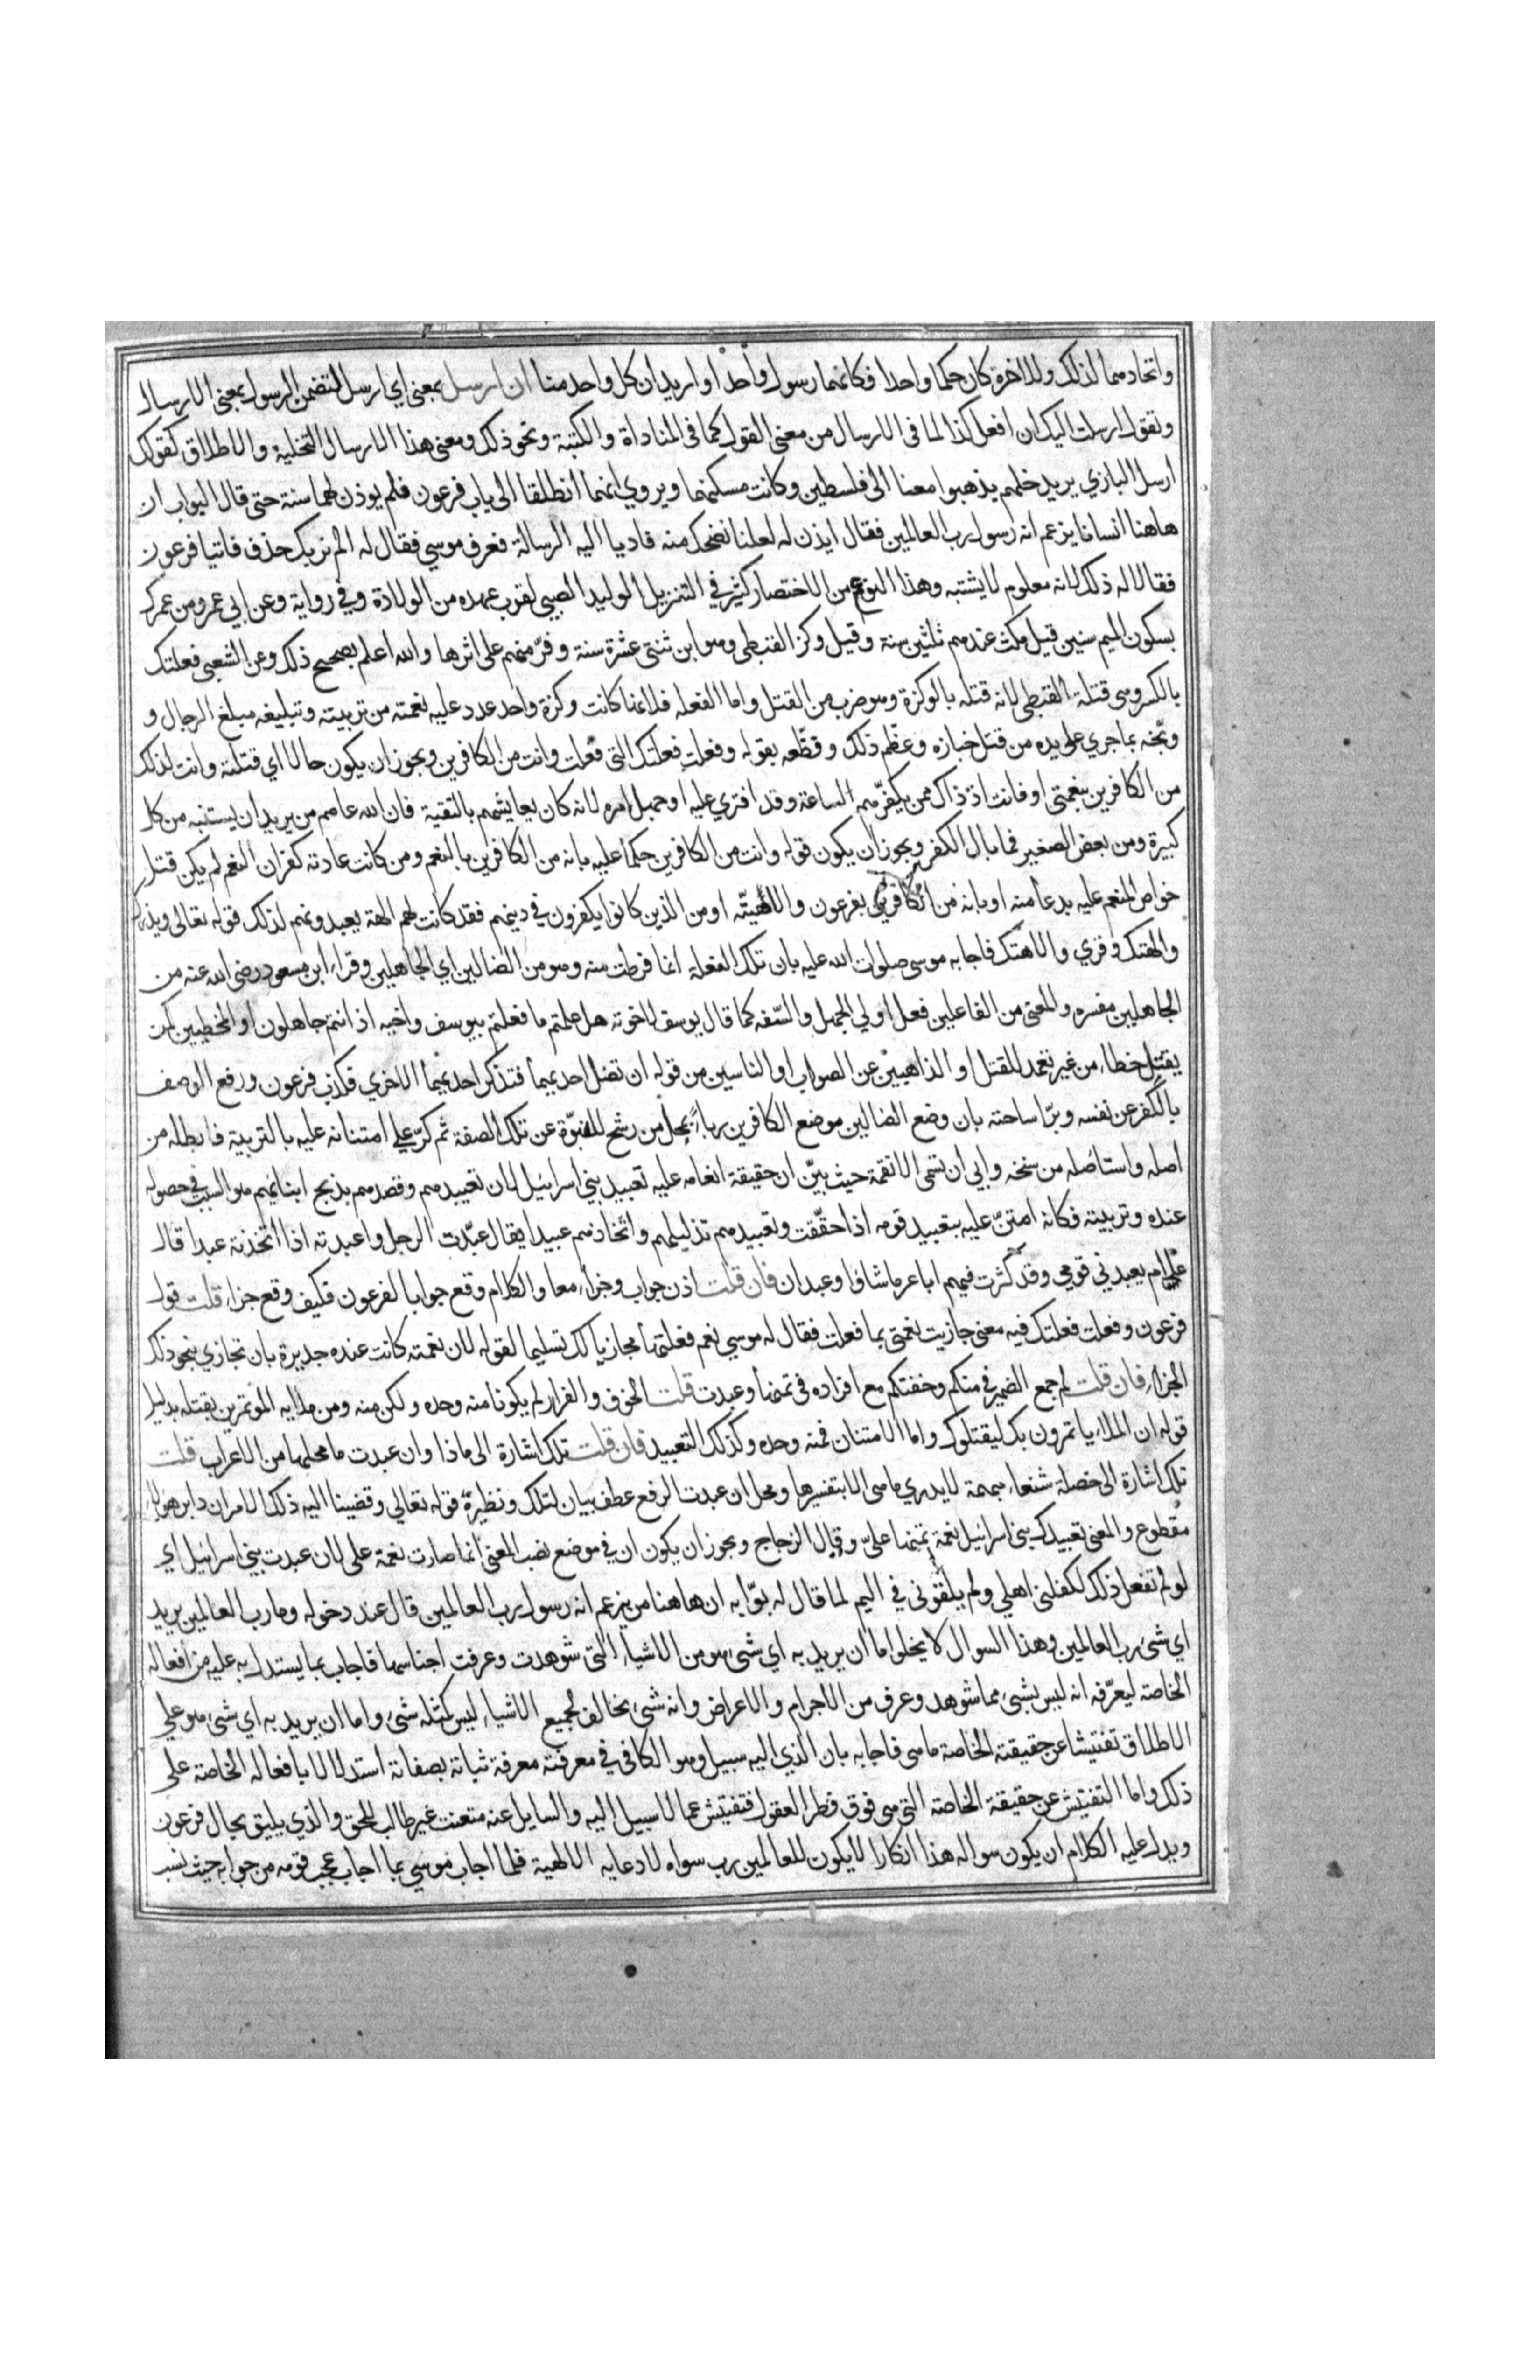 واتحادهما لذلك وللاخوة كان حكما واحدا فكانهما رسول واحد او اريد ان كل واحد منا ان ارسل بمعنى اي ارسل لتضمن الرسول بمعنى الارسال
وتقول ارسلت اليك ان افعل كذا لما في الارسال من معنى القول كما في المناداة والكتبة ونحو ذلك ومعنى هذا الارسال التخلية والاطلاق كقولك
ارسل البازي يريد خلهم يذهبوا معنا الى فلسطين وكانت مسكنهما ويروي انهما انطلقا الى باب فرعون فلم يوذن لهما سنة حتى قال البواب ان
هاهنا انسانا يزعم انه رسول رب العالمين فقال ايذن له لعلنا نضحك منه فاديا اليه الرسالة فعرف موسي فقال له الم نربك حذف فاتيا فرعون
فقالا له ذلك لانه معلوم لا يشتبه وهذا النوع من الاختصار كثير في التنزيل الوليد الصبي لقرب عهده من الولادة وفي رواية وعن ابي عمرو من عمرك
بسكون الميم سنين قيل مكث عندهم ثلثين سنة وقيل وكز القبطي وهو ابن ثنتى عشرة سنة وفرّ منهم على اثرها والله اعلم بصحيح ذلك وعن الشعبي فعلتك
بالكسر وهى قتلة القبطي لانه قتله بالوكزة وهو ضرب من القتل واما الفعله فلانها كانت وكزة واحد عدد عليه نعمته من تربيته وتبليغه مبلغ الرجال و
وبّخه بما جري على يده من قتل خبازه وعظّم ذلك وفظّعه بقوله وفعلت فعلتك التي فعلت وانت من الكافرين ويجوز ان يكون حالا اي قتلته وانت لذلك
من الكافرين بنعمتي او فانت اذ ذاك ممن يكفّرهم الساعة وقد افتري عليه او جهل امره لانه كان يعايشهم بالتقية فان الله عاصم من يريد ان يستنبه من كل
كبيرة ومن بعض الصغير فما بال الكفر ويجوز ان يكون قوله وانت من الكافرين حكما عليه بانه من الكافرين بالنعم ومن كانت عادته كفران النعم لم يكن قتل
خواص المنعم عليه بدعا منه او بانه من الكافرين بفرعون والاهيّته او من الذين كانوا يكفرون في دينهم فقد كانت لهم الهة يعبدونهم لذلك قوله تعالى ويذرك
والهتك وقري والاهتك فاجابه موسى صلوات الله عليه بان تلك الفعلة انما فرطت منه وهو من الضالين اي الجاهلين وقراء ابن مسعود رضى الله عنه من
الجاهلين مفسره والمعنى من الفاعلين فعل اولي الجهل والسّفه كما قال يوسف لاخوته هل علمتم ما فعلتم بيوسف واخيه اذ انتم جاهلون او المخطيين كمن
يقتل خطاء من غير تعمد للقتل او الذاهبين عن الصواب او الناسين من قوله ان تضل احديهما فتذكر احديهما الاخري فكذب فرعون ورفع الوصف
بالكفر عن نفسه وبرّا ساحته بان وضع الضالين موضع الكافرين رباء بمحل من رشح للنبوّة عن تلك الصفة ثم كرّ علي امتنانه عليه بالتربية فابطله من
اصله واستاصله من سنخه وابي ان تسمى الا نقمة حيث بيّن ان حقيقة انعامه عليه تعبيد بني اسرائيل لان تعبيدهم وقصدهم بذبح ابنائهم هو السبب في حصوله
عنده وتربيته فكانه امتنّ عليه بتعبيد قومه اذا حقّقت وتعبيدهم تذليلهم واتّخاذهم عبيدا يقال عبّدت الرجل واعبدته اذا اتّخذته عبدا قال
علام يعبدني قومي وقد كثرت فيهم اباعر ما شاؤا وعبدان فان قلت اذن جواب وجزاء معا والكلام وقع جوابا لفرعون فكيف وقع جزاء قلت قول
فرعون وفعلت فعلتك فيه معنى جازيت نعمتي بما فعلت فقال له موسي نعم فعلتها مجازيا لك تسليما لقوله لان نعمته كانت عنده جديرة بان تجازي بنحو ذلك
الجزاء فان قلت لم جمع الضمير في منكم وخفتكم مع افراده في تمنها وعبدت قلت الخوف والفرار لم يكونا منه وحده ولكن منه ومن ملايه الموتمرين بقتله بدليل
قوله ان الملاء ياتمرون بك ليقتلوك واما الامتنان فمنه وحده وكذلك التعبيد فان قلت تلك اشارة الى ماذا وان عبدت ما محلها من الاعراب قلت
تلك اشارة الى خصلة شنعاء مبهمة لا يدري ما هى الا بتفسيرها ومحل ان عبدت الرفع عطف بيان لتلك ونظيره قوله تعالي وقضينا اليه ذلك الامر ان دابر هولاء
مقطوع والمعنى تعبيدك بنى اسرائيل نعمة تمنها عليّ وقال الزجاج ويجوز ان يكون ان في موضع نصب المعنى انما صارت نعمة على لان عبدت بني اسرائيل اي
لو لم تفعل ذلك لكفلني اهلي ولم يلقوني في اليم لما قال له بوّابه ان هاهنا من يزعم انه رسول رب العالمين قال عند دخوله وما رب العالمين يريد
اي شىء رب العالمين وهذا السوال لا يخلوا اما ان يريد به اي شىء هو من الاشياء التي شوهدت وعرفت اجناسها فاجاب بما يستدل به عليه من افعاله
الخاصة ليعرّفه انه ليس بشىء مما شوهد وعرف من الاجرام والاعراض وانه شىء مخالف لجميع الاشياء ليس كمثله شىء واما ان يريد به اي شىء هو علي
الاطلاق تفتيشا عن حقيقته الخاصة ما هى فاجابه بان الذي اليه سبيل وهو الكافي في معرفته معرفة ثباته بصفاته استدلالا بافعاله الخاصة على
ذلك واما التفتيش عن حقيقة الخاصة التي هى فوق فطر العقول فتفتيش عما لا سبيل اليه والسايل عنه متعنت غير طالب للحق والذي يليق بحال فرعون
ويدل عليه الكلام ان يكون سواله هذا انكارا لا يكون للعالمين رب سواه لادعايه الالهية فلما اجاب موسي بما اجاب عجب قومه من جوابه حيث نسب